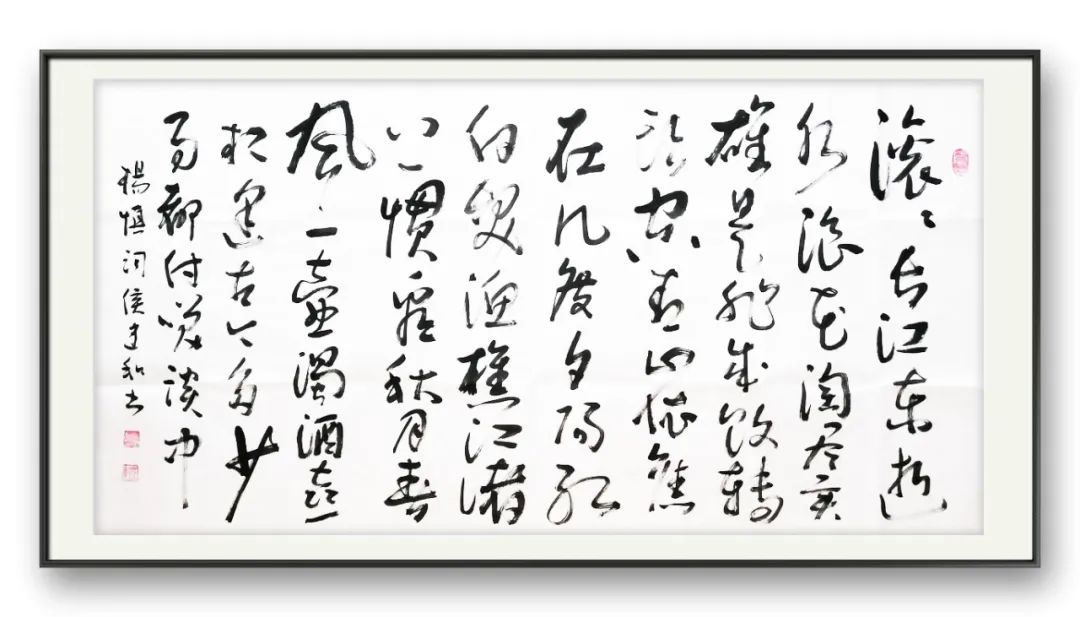 滚〻长江东逝
水浪花淘尽英
雄是非成败轉
头空青山依舊
在几度夕阳红
白发渔樵江渚
上惯看秋月春
風一壶濁酒喜
相逢古今多少
事都付笑谈中
楊慎词侯建和书